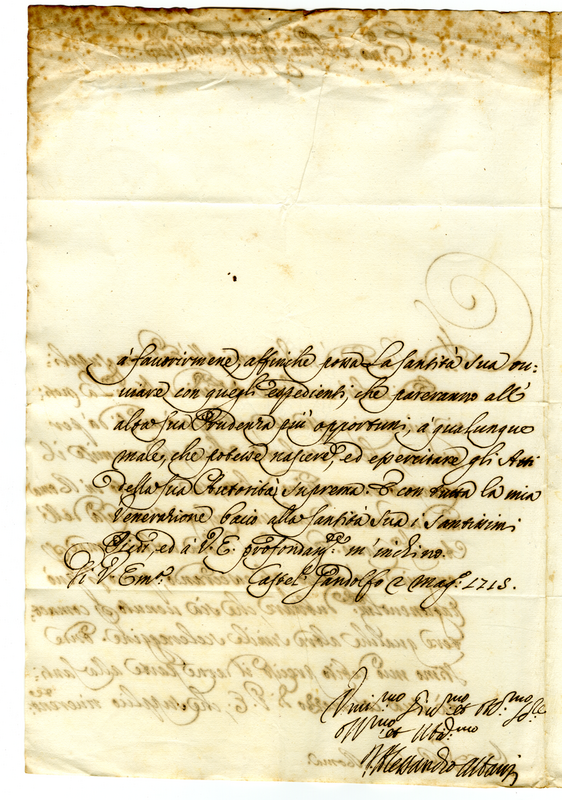 à favorirmene, affinche possa La Santità Sua ou:
viare con quegli espedienti, che pareranno all'
alta sua Prudenza più opportuni, à qualunque
male, che potesse nascere, ed esercitare gli Atti
della sua Autorità suprema: E con tutta la mia
Venerazione bacio alla Santità Sua i Santissimi
Piedi, ed à V. E. profondam.te m'inchino.
Di V. Em.a Castel Gandolfo 2 Mag.o 1713.
Umil.mo Div.mo et Obl.mo
et Ubid.mo
Alessandro Albani